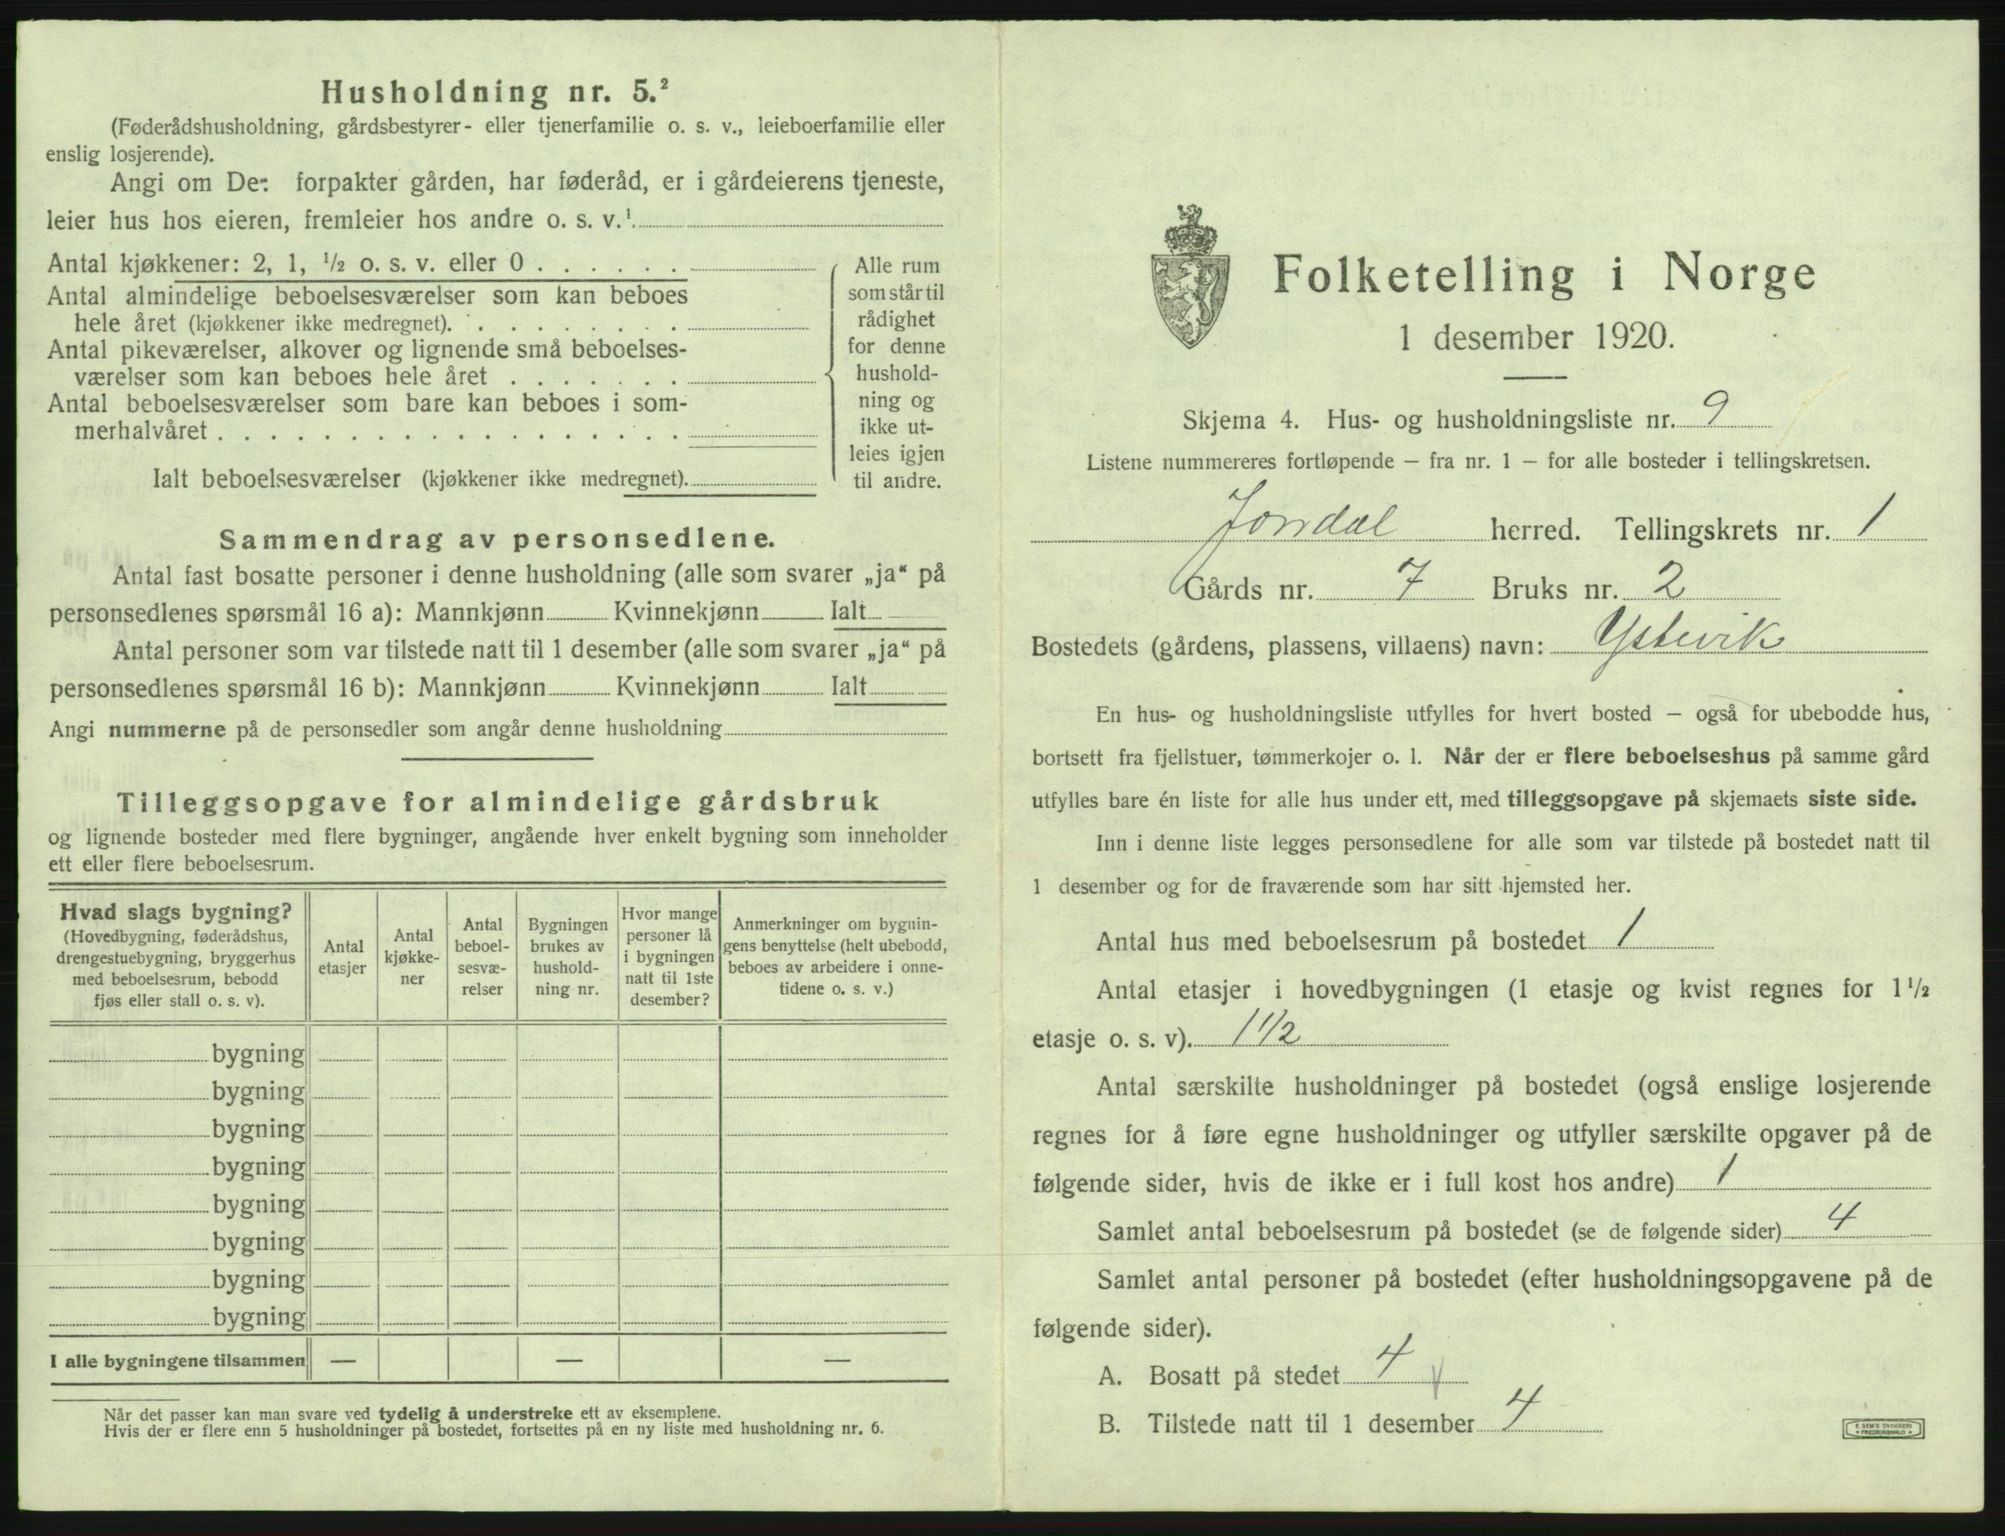 Husholdning nr. 5.²
(Føderådshusholdning, gårdsbestyrer- eller tjenerfamilie o. s. v., leieboerfamilie eller
enslig losjerende).
Angi om De: forpakter gården, har føderåd, er i gårdeierens tjeneste,
leier hus hos eieren, fremleier hos andre o. s. v.¹
Antal kjøkkener: 2, 1, ½ o. s. v. eller 0 . . . . . .
Antal almindelige beboelsesværelser som kan beboes
hele året (kjøkkener ikke medregnet). . . . . . . . .
Antal pikeværelser, alkover og lignende små beboelses-
værelser som kan beboes hele året . . . . . . .
Antal beboelsesværelser som bare kan beboes i som-
merhalvåret . . . . . . . . . . . . . . . . . .
Ialt beboelsesværelser (kjøkkener ikke medregnet).
Alle rum
som står til
rådighet
for denne
hushold-
ning og
ikke ut-
leies igjen
til andre.
Sammendrag av personsedlene.
Antal fast bosatte personer i denne husholdning (alle som svarer „ja“ på
personsedlenes spørsmål 16 a): Mannkjønn Kvinnekjønn Ialt
Antal personer som var tilstede natt til 1 desember (alle som svarer „ja“ på
personsedlenes spørsmål 16 b): Mannkjønn Kvinnekjønn Ialt
Angi nummerne på de personsedler som angår denne husholdning
Tilleggsopgave for almindelige gårdsbruk
og lignende bosteder med flere bygninger, angående hver enkelt bygning som inneholder
ett eller flere beboelsesrum.
Hvad slags bygning?
(Hovedbygning, føderådshus,
drengestuebygning, bryggerhus
med beboelsesrum, bebodd
fjøs eller stall o. s. v).
Antal
etasjer
Antal
kjøkke-
ner
Antal
beboel-
sesvæ-
relser
Bygningen
brukes av
hushold-
ning nr.
Hvor mange
personer lå
i bygningen
natt til 1ste
desember?
Anmerkninger om bygnin-
gens benyttelse (helt ubebodd,
beboes av arbeidere i onne-
tidene o. s. v.)
bygning
bygning
bygning
bygning
bygning
bygning
bygning
bygning
I alle bygningene tilsammen — — —
Når det passer kan man svare ved tydelig å understreke ett av eksemplene.
Hvis der er flere enn 5 husholdninger på bostedet, fortsettes på en ny liste med husholdning nr. 6.
Folketelling i Norge
1 desember 1920.
Skjema 4. Hus- og husholdningsliste nr. 9
Listene nummereres fortløpende — fra nr. 1 — for alle bosteder i tellingskretsen.
Jondal herred. Tellingskrets nr. 1
Gårds nr. 7 Bruks nr. 2
Bostedets (gårdens, plassens, villaens) navn: Ystevik
En hus- og husholdningsliste utfylles for hvert bosted — også for ubebodde hus,
bortsett fra fjellstuer, tømmerkojer o. l. Når der er flere beboelseshus på samme gård
utfylles bare én liste for alle hus under ett, med tilleggsopgave på skjemaets siste side.
Inn i denne liste legges personsedlene for alle som var tilstede på bostedet natt til
1 desember og for de fraværende som har sitt hjemsted her.
Antal hus med beboelsesrum på bostedet 1
Antal etasjer i hovedbygningen (1 etasje og kvist regnes for 1½
etasje o. s. v). 1 1/2
Antal særskilte husholdninger på bostedet (også enslige losjerende
regnes for å føre egne husholdninger og utfyller særskilte opgaver på de
følgende sider, hvis de ikke er i full kost hos andre) 1
Samlet antal beboelsesrum på bostedet (se de følgende sider) 4
Samlet antal personer på bostedet (efter husholdningsopgavene på de
følgende sider).
A. Bosatt på stedet 4
B. Tilstede natt til 1 desember 4
E. SEM'S TRYKKERI
FREDRIKSHALD